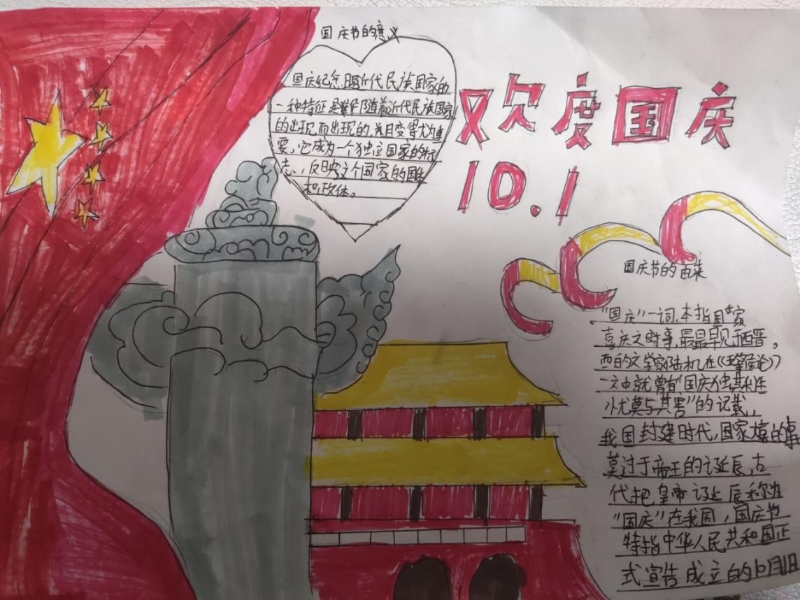 国庆节的意义
国庆纪念日是近代民族国家的
一种特征,是伴随着近代民族国家
的出现而出现的,并且变得尤为重
要,它成为一个独立国家的标
志,反映这个国家的国体
和政体。
欢度国庆
10.1
国庆节的由来
"国庆"一词,本指国家
喜庆之事,最早见西晋,
西的文学家陆机在《五等诸侯论》
一文中就曾有"国庆独其利主
忧莫与其害"的记载,
我国封建时代,国家喜庆的事
莫过于帝王的诞辰,古
代把皇帝诞辰称为
"国庆"在我国,国庆节
特指中华人民共和国正
式宣告成立的10月1日